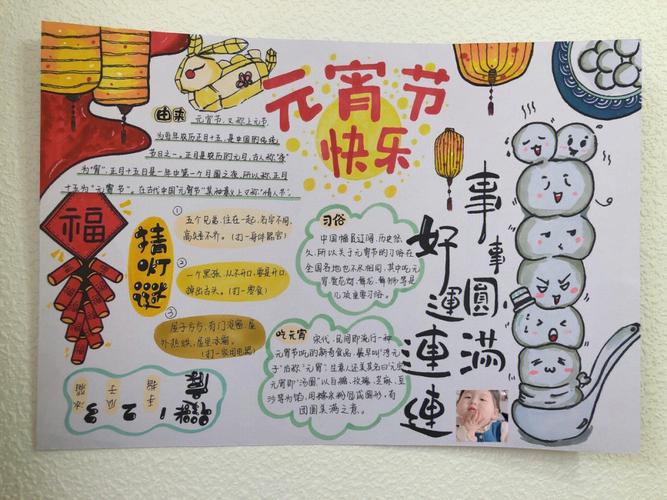 元宵节
快乐
由来
元宵节,又称上元节,
为每年农历正月十五,是中国的传统
节日之一。正月是农历的元月,古人称“夜”
为“宵”,正月十五日是一年中第一个月圆之夜,所以称正月
十五为“元宵节”。在古代中国“元宵节”某种意义上又称“情人节”。
福
猜灯谜
①
五个兄弟,住在一起,名字不同,
高矮不齐。(打一身体器官)
②
一个黑孩,从不开口,要是开口,
掉出舌头。(打一零食)
③
屋子方方,有门没窗,屋
外热烘,屋里冰霜。
(打一家用电器)
谜底
1 手指
2 瓜子
3 冰箱
习俗
中国幅员辽阔,历史悠
久,所以关于元宵节的习俗在
全国各地也不尽相同,其中吃元
宵、赏花灯、舞龙、舞狮子等是
几项重要习俗。
吃元宵
宋代,民间即流行一种
元宵节吃的新奇食品,最早叫“浮元
子”后称“元宵”,生意人还美其名曰“元宝”
元宵即“汤圆”以白糖、玫瑰、芝麻、豆
沙等为馅,用糯米粉包成圆形,有
团圆美满之意。
好運連連
事事圓满